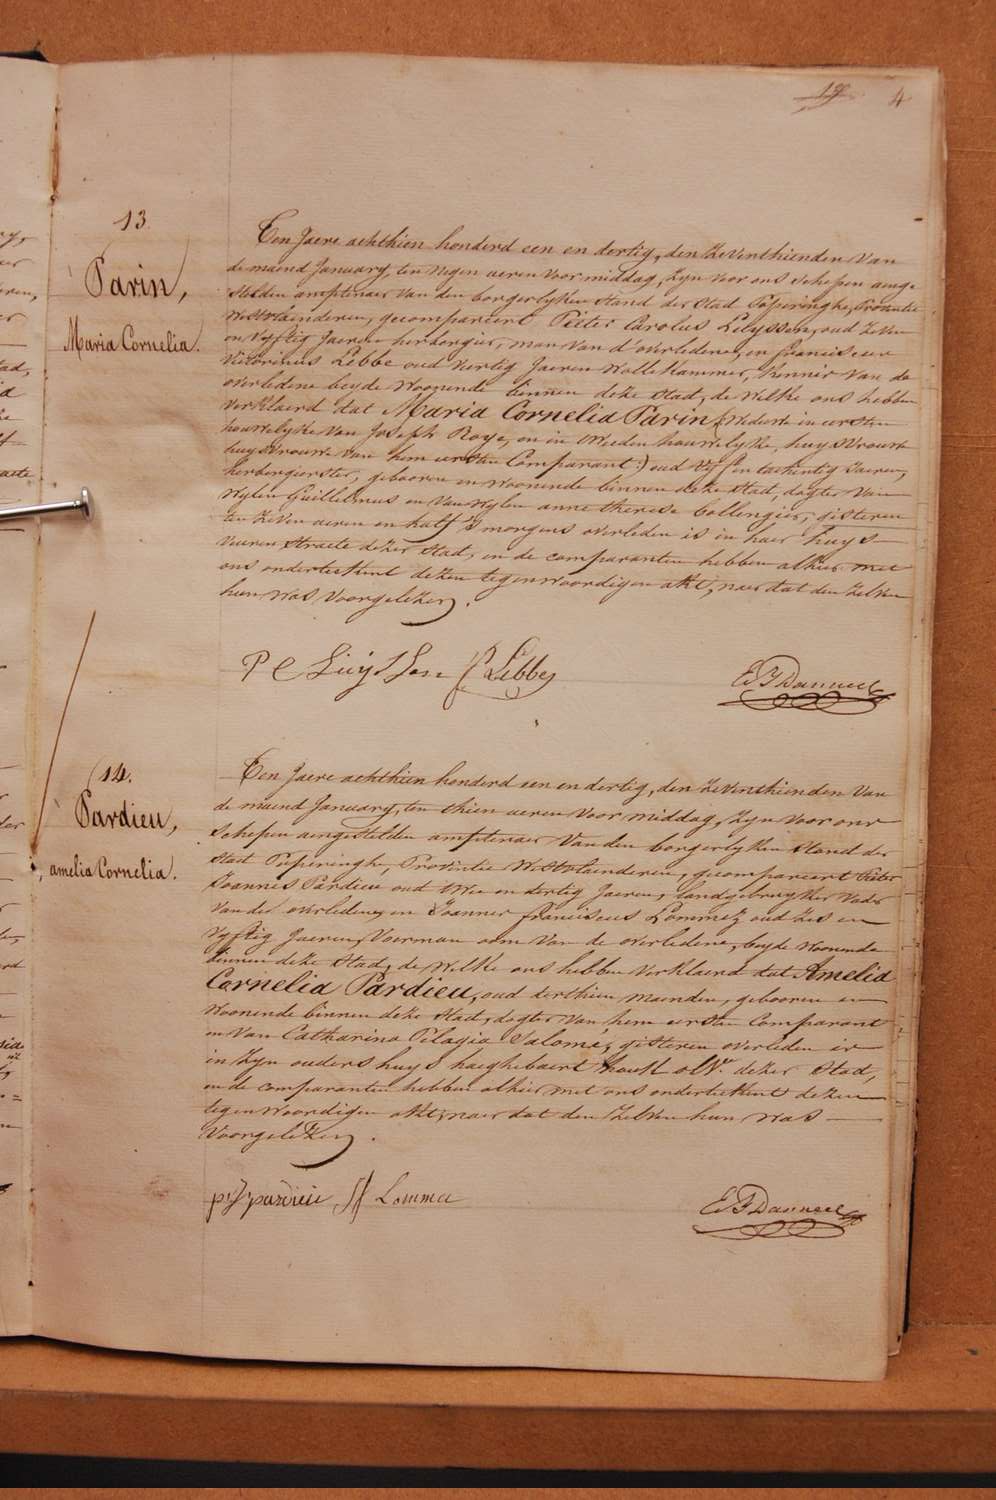 4
13
Parin,
Maria Cornelia.
Ten Jaere achthien honderd een en dertig, den zeventhienden van
de maend January, ten negen ueren voor middag, zyn voor ons schepen aenge-
stelden amptenaer van den borgerlyken stand der stad Poperinghe, Provintie
Westvlaenderen, gecompareert Pieter Carolus Leiyssen, oud zeven
en vyftig Jaeren herbergier, man van d'overledene, en franciscus
Victorinus Lebbe oud viertig Jaeren Wollekammer, kennis van de
overledene beyde Woonende binnen deze stad, de Welke ons hebben
verklaerd dat Maria Cornelia Parin (Weduwe in eersten
houwelyke van Joseph Roye, en in tweeden houwelyke, huysvrouw
huysvrouwe van hem eersten Comparant:) oud vyf en tachentig Jaeren,
herbergierster, gebooren en woonende binnen deze stad, dogter van
Wylen Guillelmus en van wylen anne therese bollengier, gisteren
ten zeven ueren en half 's morgens overleden is in haer huys
veuren straete dezer stad, en de comparanten hebben alhier met
ons onderteekent dezen tegenwoordigen akt, naer dat den zelven
hun was voorgelezen.
P C Luyssen F Lebbe
E F Danneel
14.
Pardieu,
amelia Cornelia.
Ten Jaere achthien honderd een en dertig, den zeventhienden van
de maend January, ten thien ueren voor middag, zyn voor ons
schepen aengestelden amptenaer van den borgerlyken stand der
stad Poperinghe, Provintie Westvlaenderen, gecompareert Pieter
Joannes Pardieu oud twee en dertig Jaeren, landgebruyker vader
van de overledene, en Joannes franciscus Lommez oud zes en
vyftig Jaeren, Voerman oom van de overledene, beyde woonende
binnen deze stad, de welke ons hebben verklaerd dat Amelia
Cornelia Pardieu, oud derthien maenden, gebooren en
woonende binnen deze stad, dogter van hem eersten Comparant
en van Catharina Pelagia Salomé, gisteren overleden is
in zyn ouders huys haeghebaert houk dezer stad,
en de comparanten hebben alhier met ons onderteekent dezen
tegenwoordigen akt, naer dat den zelven hun was
voorgelezen.
p J pardieu J f Lomme
E F Danneel